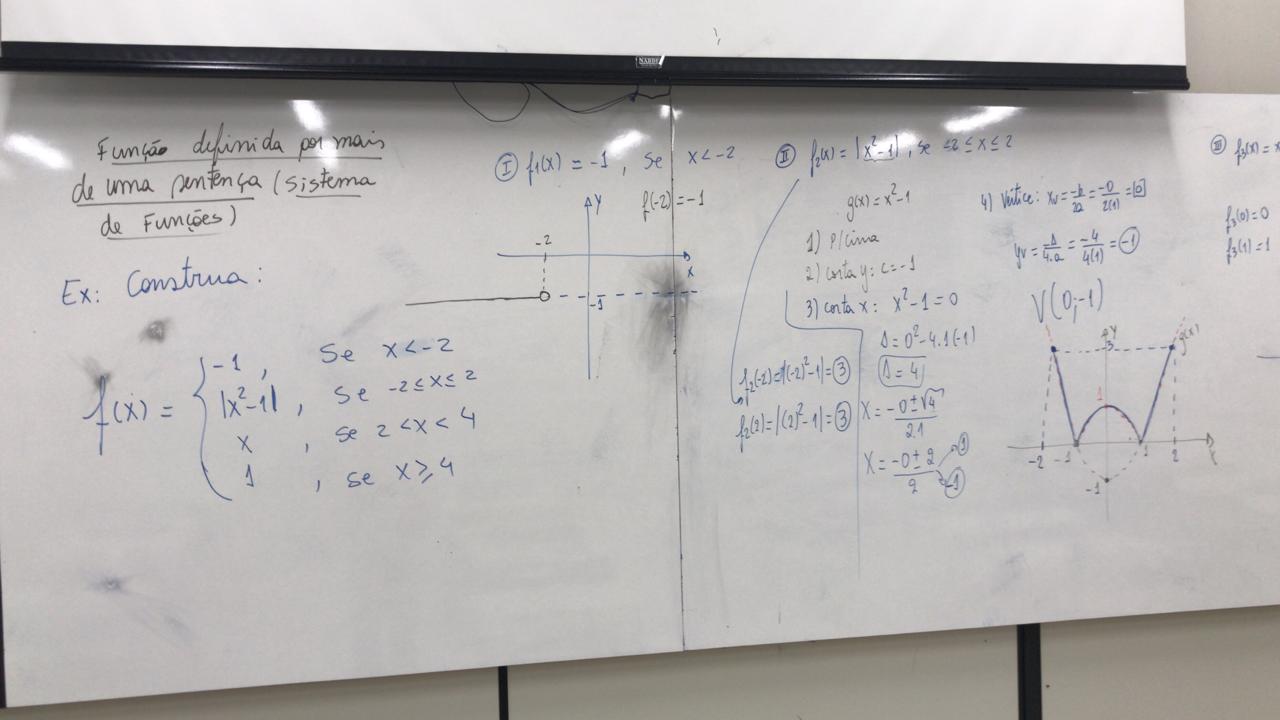 Função definida por mais
de uma sentença (sistema
de Funções)
Ex: Construa:
f(x) = { -1, Se x<-2
|x²-1|, Se -2≤x≤2
x, se 2<x<4
1, se x≥4
I f₁(x) = -1, se x<-2
f(-2)=-1
y
-2
x
-1
II f₂(x) = |x²-1|, se -2≤x≤2
g(x) = x²-1
1) P/cima
2) corta y: c=-1
3) corta x: x²-1=0
Δ=0²-4.1(-1)
Δ=4
x = -0±√4
2.1
x = -0±2
2
1
-1
f₂(-2)=|(-2)²-1|=3
f₂(2)=|(2)²-1|=3
4) Vértice: xv = -b/2a = -0/2(1) = 0
yv = -Δ/4.a = -4/4(1) = -1
V(0;-1)
y
3
g(x)
1
-2 -1 1 2
x
-1
III f₃(x)=x
f₃(0)=0
f₃(1)=1